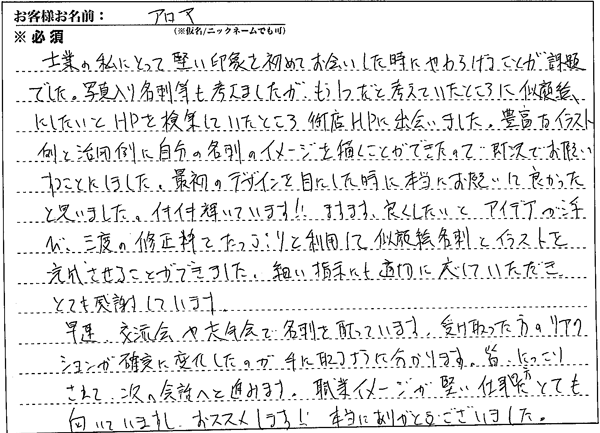 お客様お名前： アロマ
※必須 （※仮名/ニックネームでも可）
士業の私にとって堅い印象を初めてお会いした時にやわらげることが課題
でした。写真入り名刺等も考えましたが、もう1つなと考えていたところに似顔絵
にしたいとHPを検索していたところ、御店HPに出会いました。豊富なイラスト
例と活用例に自分の名刺のイメージを描くことができたので即決でお願い
することにしました。最初のデザインを目にした時に本当にお願いして良かった
と思いました。付付輝いています!! ますます、良くしたいとアイデアが浮
び、三度の修正料でたっぷりと利用して似顔絵名刺とイラストを
完成させることができました。細い指示にも適切に応じていただき
とても感謝しています。
早速、交流会や忘年会で名刺を配っています。受け取った方のリアク
ションが確実に変化したのが手に取るように分かります。皆、にっこり
されて、次の会話へと進みます。職業イメージが堅い仕事の方とても
向いていますし、おススメします!! 本当にありがとうございました。